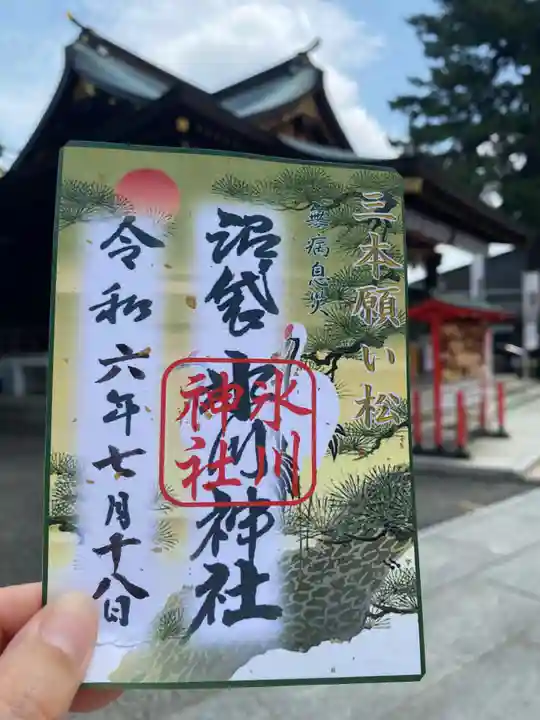 三本願い松
無病息災
沼袋氷川神社
氷川
神社
令和六年七月十八日